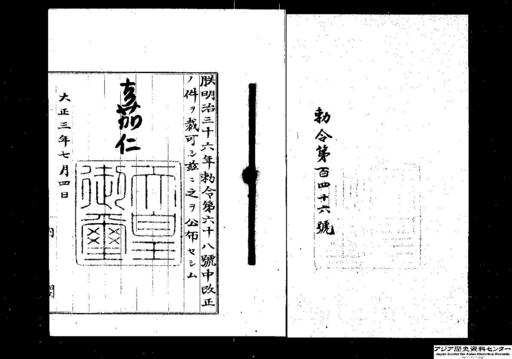 勅令第百四十六號
朕明治三十六年勅令第六十八號中改正
ノ件ヲ裁可シ茲ニ之ヲ公布セシム
嘉仁
天皇御璽
大正三年七月四日
内閣
アジア歴史資料センター
Japan Center for Asian Historical Records